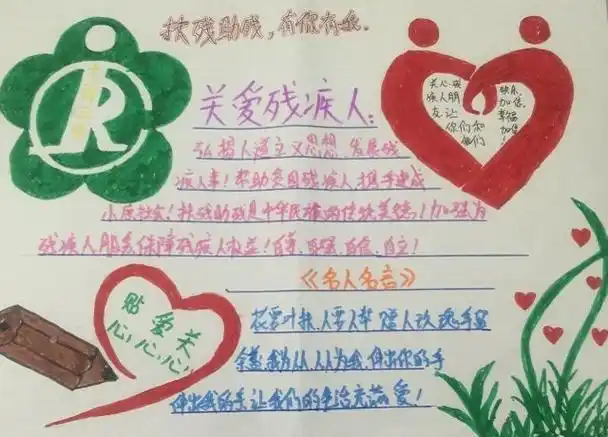 扶残助残,有你有我.
关爱残疾人:
弘扬人道主义思想,发展残
疾人事!帮助贫困残疾人携手建成
小康社会!扶残助残是中华民族的传统美德!加强为
残疾人服务保障残疾人权益!自尊,自强,自信,自立!
《名人名言》
花要叶扶,人要人帮 赠人玫瑰手留
余香,我为人人,人人为我,伸出你的手
伸出我的手让我们的生活充满爱!
关心残
疾人朋
友让
你们和
他们
快乐,
加倍,
幸福
加倍!
贴 爱 关
心,心,心,
R